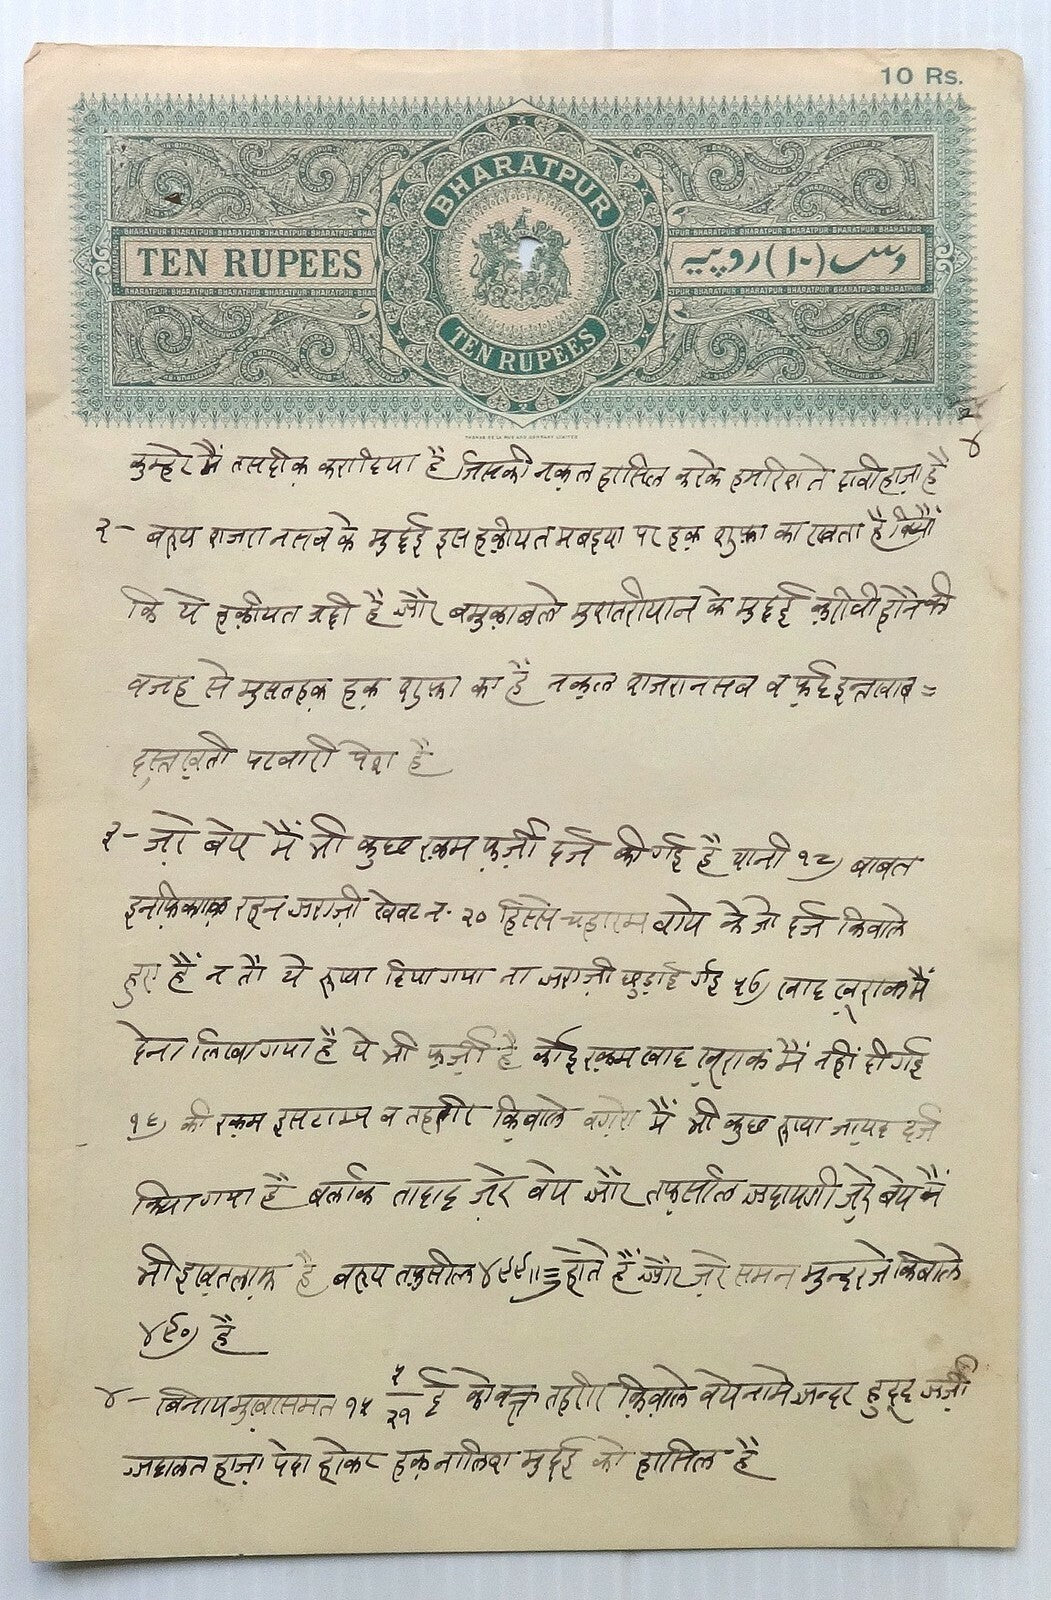 10 Rs.
BHARATPUR
TEN RUPEES
دس (۱۰) روپیہ
TEN RUPEES
THOMAS DE LA RUE AND COMPANY LIMITED
४
कुम्हेर मैं तसदीक़ करादिया है जिसकी नक़ल हासिल करके हमरिश्ते दावीहाज़ा है
२- बरूय शजरा नसब के मुद्दई इस हक़ीयत मबइया पर हक़ शुफ़ा का रखता है क्यों
कि ये हक़ीयत जद्दी है और बमुक़ाबले मुशतरीयान के मुद्दई क़रीबी होने की
वजह से मुसतहक़ हक़ शुफ़ा का है नक़ल शजरा नसब व फ़र्द इन्तख़ाब =
दस्तख़ती पटवारी पेश है
३- ज़रे बेय मैं भी कुछ रक़म फ़र्ज़ी दर्ज की गई है यानी १८) बाबत
इनफ़िकाक रहन अराज़ी खेवट न. २० हिस्से चहारम बेय के जो दर्ज किबाले
हुए हैं न तौ ये रूपया दिया गया ना अराज़ी छुड़ाई गई ५७) खाद ख़ूराक मैं
देना लिखा गया है ये भी फ़र्ज़ी है कोई रक़म खाद ख़ूराक मैं नहीं दी गई
१६) की रक़म इसटाम्प व तहरीर क़िबाले वग़ेरा मैं भी कुछ रूपया ज़ायद दर्ज
किया गया है बल्कि तादाद ज़रे बेय और तफ़सील अदायगी ज़रे बेय मैं
भी इख़तलाफ़ है बरूय तफ़सील ४९९॥≡) होते हैं और ज़रे समन मुन्दरजे क़िबाले
४९०) है
४- बिनाय मुख़ासमत १५ ५/२१ ई को वक़्त तहरीर क़िबाले बेयनामे अन्दर हुदूद अर्ज़ी
अदालत हाज़ा पेदा होकर हक़ नालिश मुद्दई को हासिल है